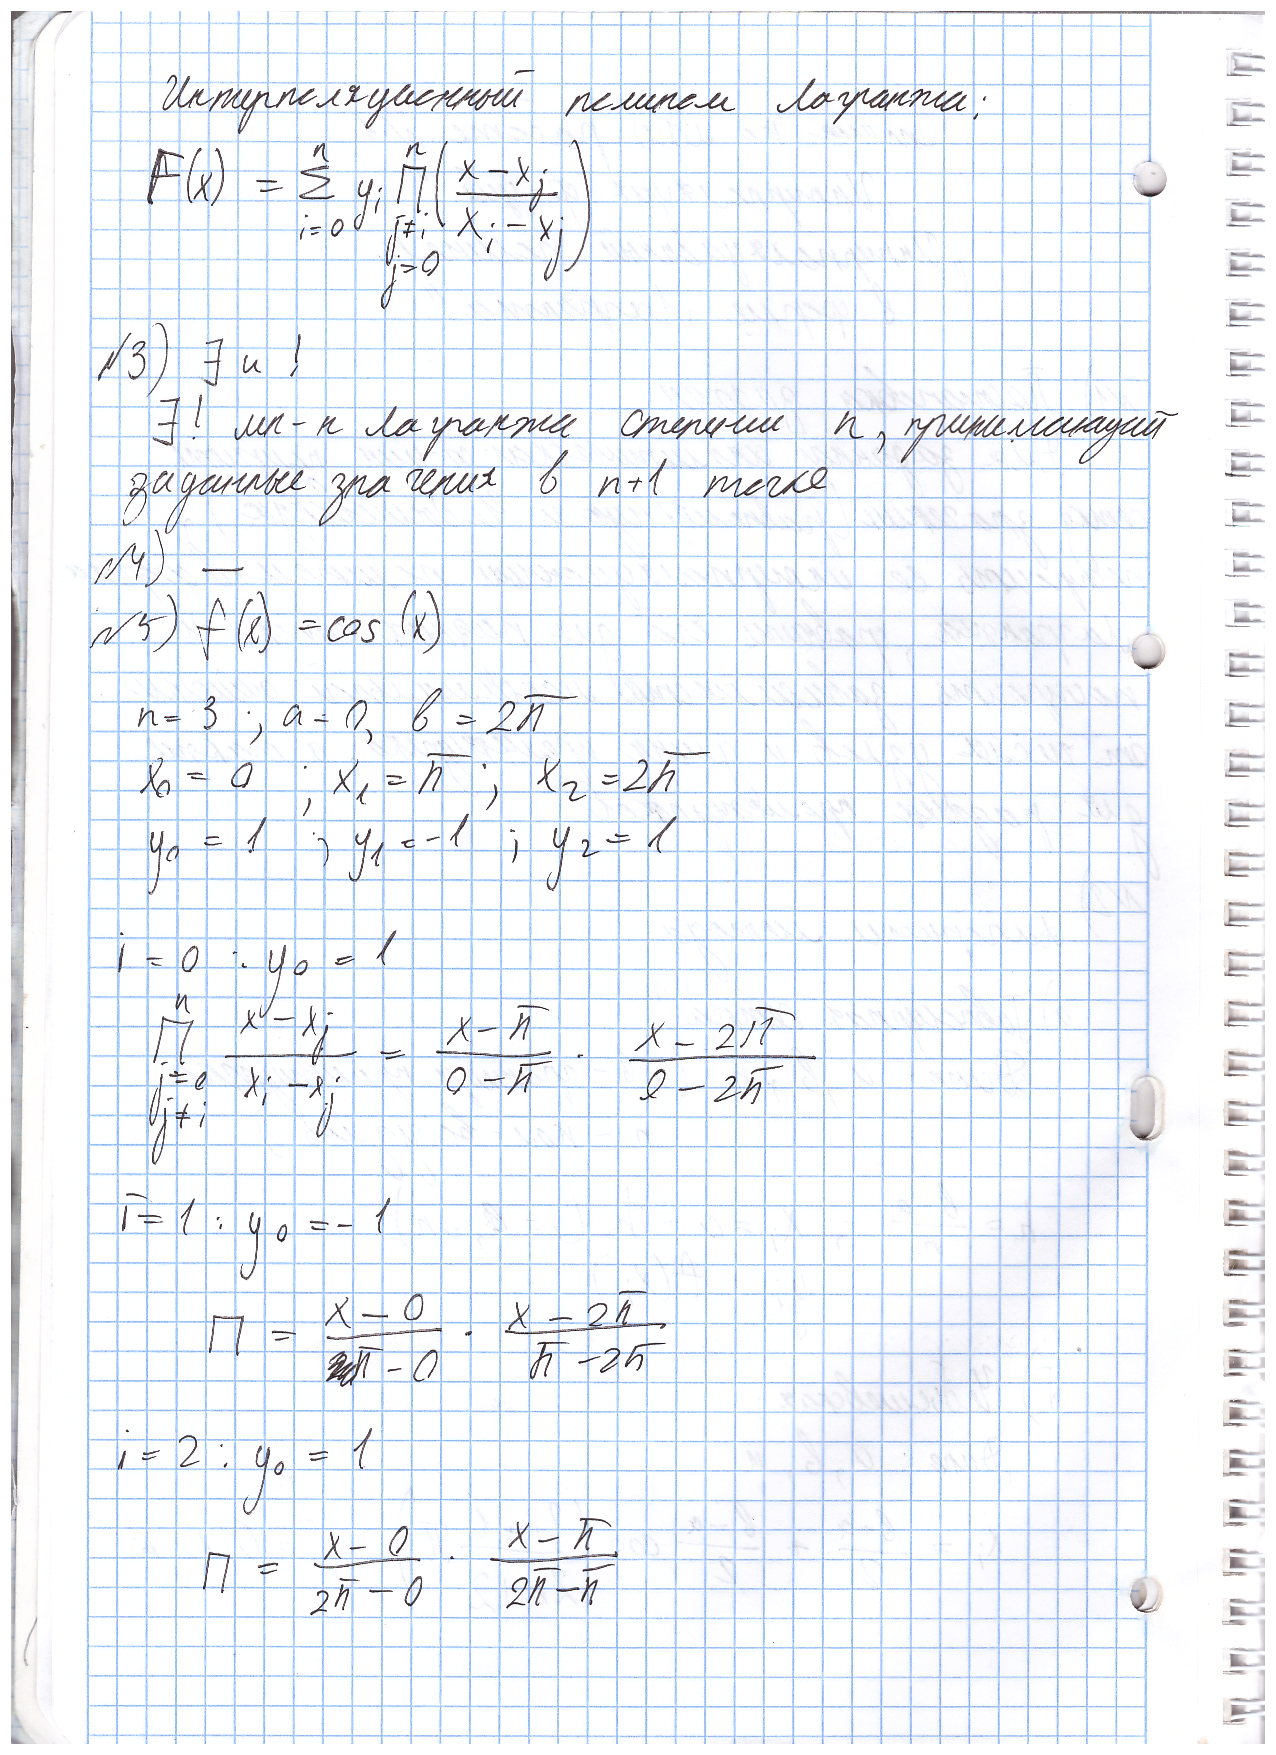 Интерполяционный полином Лагранжа:
F(x) = n Σ i=0 yᵢ n Π j≠i j=0 ( (x - xⱼ) / (xᵢ - xⱼ) )
№3) ∃ и !
∃! мн-н Лагранжа степени n, принимающий
заданные значения в n+1 точке
№4) —
№5) f(x) = cos(x)
n = 3 ; a = 0, b = 2π
x₀ = 0 ; x₁ = π ; x₂ = 2π
y₀ = 1 ; y₁ = -1 ; y₂ = 1
i = 0 : y₀ = 1
n Π j=0 j≠i (x - xⱼ) / (xᵢ - xⱼ) = (x - π) / (0 - π) · (x - 2π) / (0 - 2π)
i = 1 : y₀ = -1
Π = (x - 0) / (π - 0) · (x - 2π) / (π - 2π)
i = 2 : y₀ = 1
Π = (x - 0) / (2π - 0) · (x - π) / (2π - π)